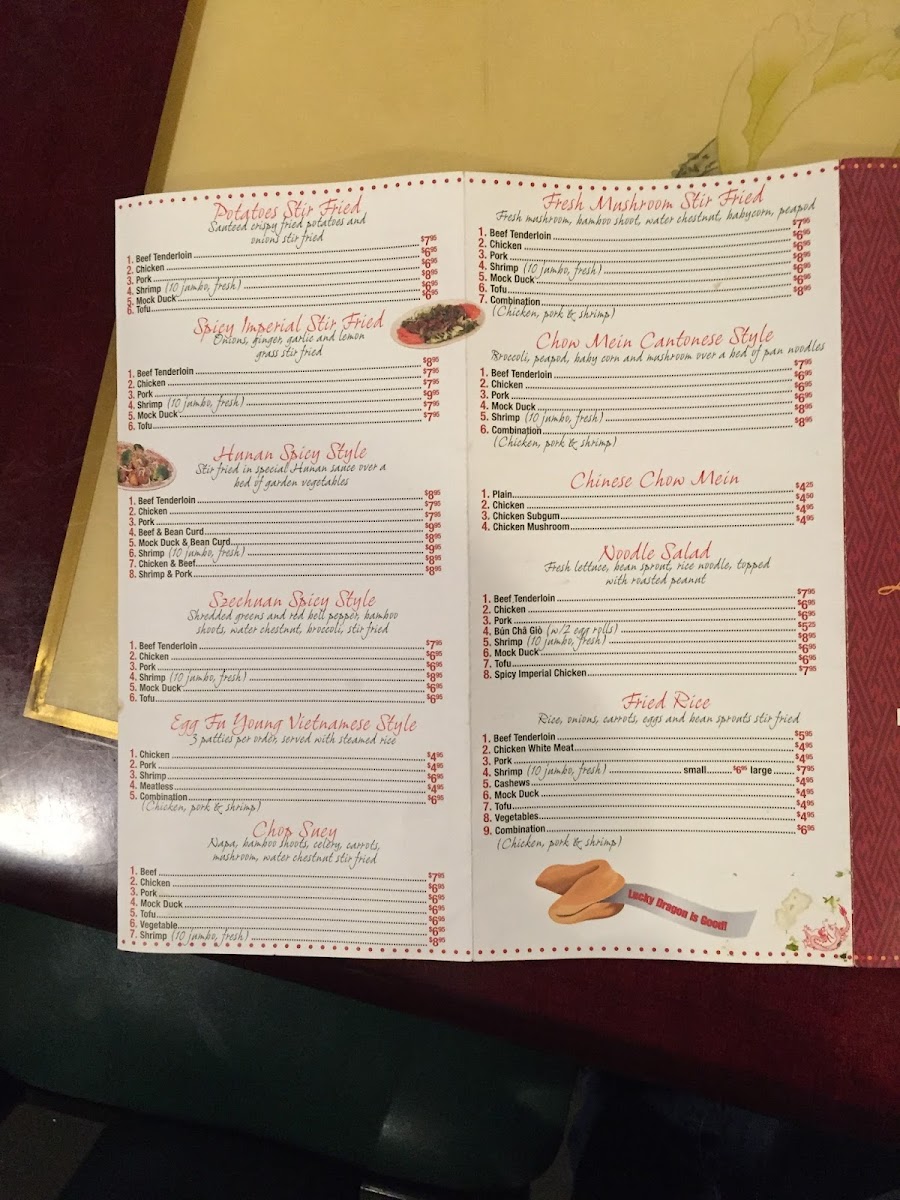 Potatoes Stir Fried
Sauteed crispy fried potatoes and
onions stir fried
1. Beef Tenderloin $7.95
2. Chicken $6.95
3. Pork $6.95
4. Shrimp (10 jambo, fresh) $8.95
5. Mock Duck $6.95
6. Tofu $6.95
Spicy Imperial Stir Fried
Onions, ginger, garlic and lemon
grass stir fried
1. Beef Tenderloin $8.95
2. Chicken $7.95
3. Pork $7.95
4. Shrimp (10 jambo, fresh) $9.95
5. Mock Duck $7.95
6. Tofu $7.95
Hunan Spicy Style
Stir fried in special Hunan sauce over a
bed of garden vegetables
1. Beef Tenderloin $8.95
2. Chicken $7.95
3. Pork $7.95
4. Beef & Bean Curd $9.95
5. Mock Duck & Bean Curd $8.95
6. Shrimp (10 jambo, fresh) $9.95
7. Chicken & Beef $8.95
8. Shrimp & Pork $8.95
Szechuan Spicy Style
Shredded greens and red bell pepper, bamboo
shoots, water chestnut, broccoli, stir fried
1. Beef Tenderloin $7.95
2. Chicken $6.95
3. Pork $6.95
4. Shrimp (10 jambo, fresh) $8.95
5. Mock Duck $6.95
6. Tofu $6.95
Egg Fu Young Vietnamese Style
3 patties per order, served with steamed rice
1. Chicken $4.95
2. Pork $4.95
3. Shrimp $6.95
4. Meatless $4.95
5. Combination $6.95
(Chicken, pork & shrimp)
Chop Suey
Napa, bamboo shoots, celery, carrots,
mushroom, water chestnut stir fried
1. Beef $7.95
2. Chicken $6.95
3. Pork $6.95
4. Mock Duck $6.95
5. Tofu $6.95
6. Vegetable $6.95
7. Shrimp (10 jambo, fresh) $8.95
Fresh Mushroom Stir Fried
Fresh mushroom, bamboo shoot, water chestnut, babycorn, peapod
1. Beef Tenderloin $7.95
2. Chicken $6.95
3. Pork $6.95
4. Shrimp (10 jambo, fresh) $8.95
5. Mock Duck $6.95
6. Tofu $6.95
7. Combination $8.95
(Chicken, pork & shrimp)
Chow Mein Cantonese Style
Broccoli, peapod, baby corn and mushroom over a bed of pan noodles
1. Beef Tenderloin $7.95
2. Chicken $6.95
3. Pork $6.95
4. Mock Duck $6.95
5. Shrimp (10 jambo, fresh) $8.95
6. Combination $8.95
(Chicken, pork & shrimp)
Chinese Chow Mein
1. Plain $4.25
2. Chicken $4.50
3. Chicken Subgum $4.95
4. Chicken Mushroom $4.95
Noodle Salad
Fresh lettace, bean sprout, rice noodle, topped
with roasted peanut
1. Beef Tenderloin $7.95
2. Chicken $6.95
3. Pork $6.95
4. Bún Chả Giò (w/2 egg rolls) $5.25
5. Shrimp (10 jambo, fresh) $8.95
6. Mock Duck $6.95
7. Tofu $6.95
8. Spicy Imperial Chicken $7.95
Fried Rice
Rice, onions, carrots, eggs and bean sprouts stir fried
1. Beef Tenderloin $5.95
2. Chicken White Meat $4.95
3. Pork $4.95
4. Shrimp (10 jambo, fresh) small $6.95 large $7.95
5. Cashews $4.95
6. Mock Duck $4.95
7. Tofu $4.95
8. Vegetables $4.95
9. Combination $6.95
(Chicken, pork & shrimp)
Lucky Dragon is Good!